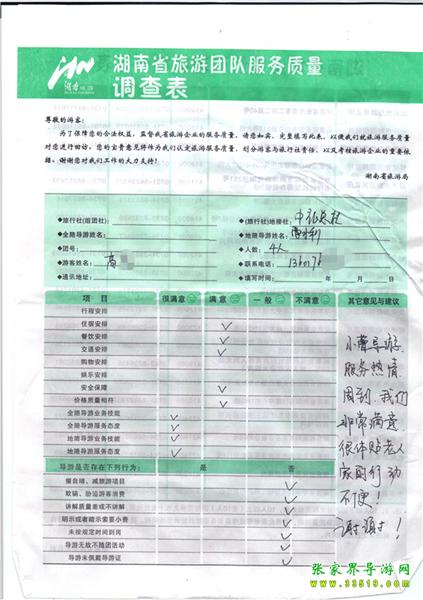 湖南省旅游团队服务质量
调查表
尊敬的游客：
为了保障您的合法权益，监督我省旅游企业的服务质量，请您如实、完整填写此表，以便我们就旅游服务质量
对您进行回访。您的宝贵意见将作为我们认定旅游服务质量、划分游客与旅行社责任，以及考核旅游企业的重要依
据。谢谢您对我们工作的大力支持！
湖南省旅游局
◆旅行社(组团社)： ◆(旅行社)地接社：
◆全陪导游姓名： ◆地陪导游姓名：
◆团号： ◆人数：4人
◆游客姓名： ◆联系电话：
◆通讯地址： ◆填写时间： 年 月 日
项 目 很满意 满 意 一 般 不满意 其它意见与建议
行程安排
住宿安排 ✓
餐饮安排 ✓
交通安排 ✓
购物安排
娱乐安排
安全保障 ✓
价格质量相符 ✓
全陪导游业务技能 ✓
全陪导游服务态度 ✓
地陪导游业务技能 ✓
地陪导游服务态度 ✓
导游是否存在下列行为： 是 否
擅自增、减旅游项目 ✓
欺骗、胁迫游客消费 ✓
讲解质量差或不讲解 ✓
明示或者暗示索要小费 ✓
未按规定时间到岗 ✓
导游无故不随团活动 ✓
导游未佩戴导游证 ✓
小曹导游
服务热情
周到.我们
非常满意
很体贴老人
家的行动
不便！
谢谢！
张家界导游网
www.33519.com